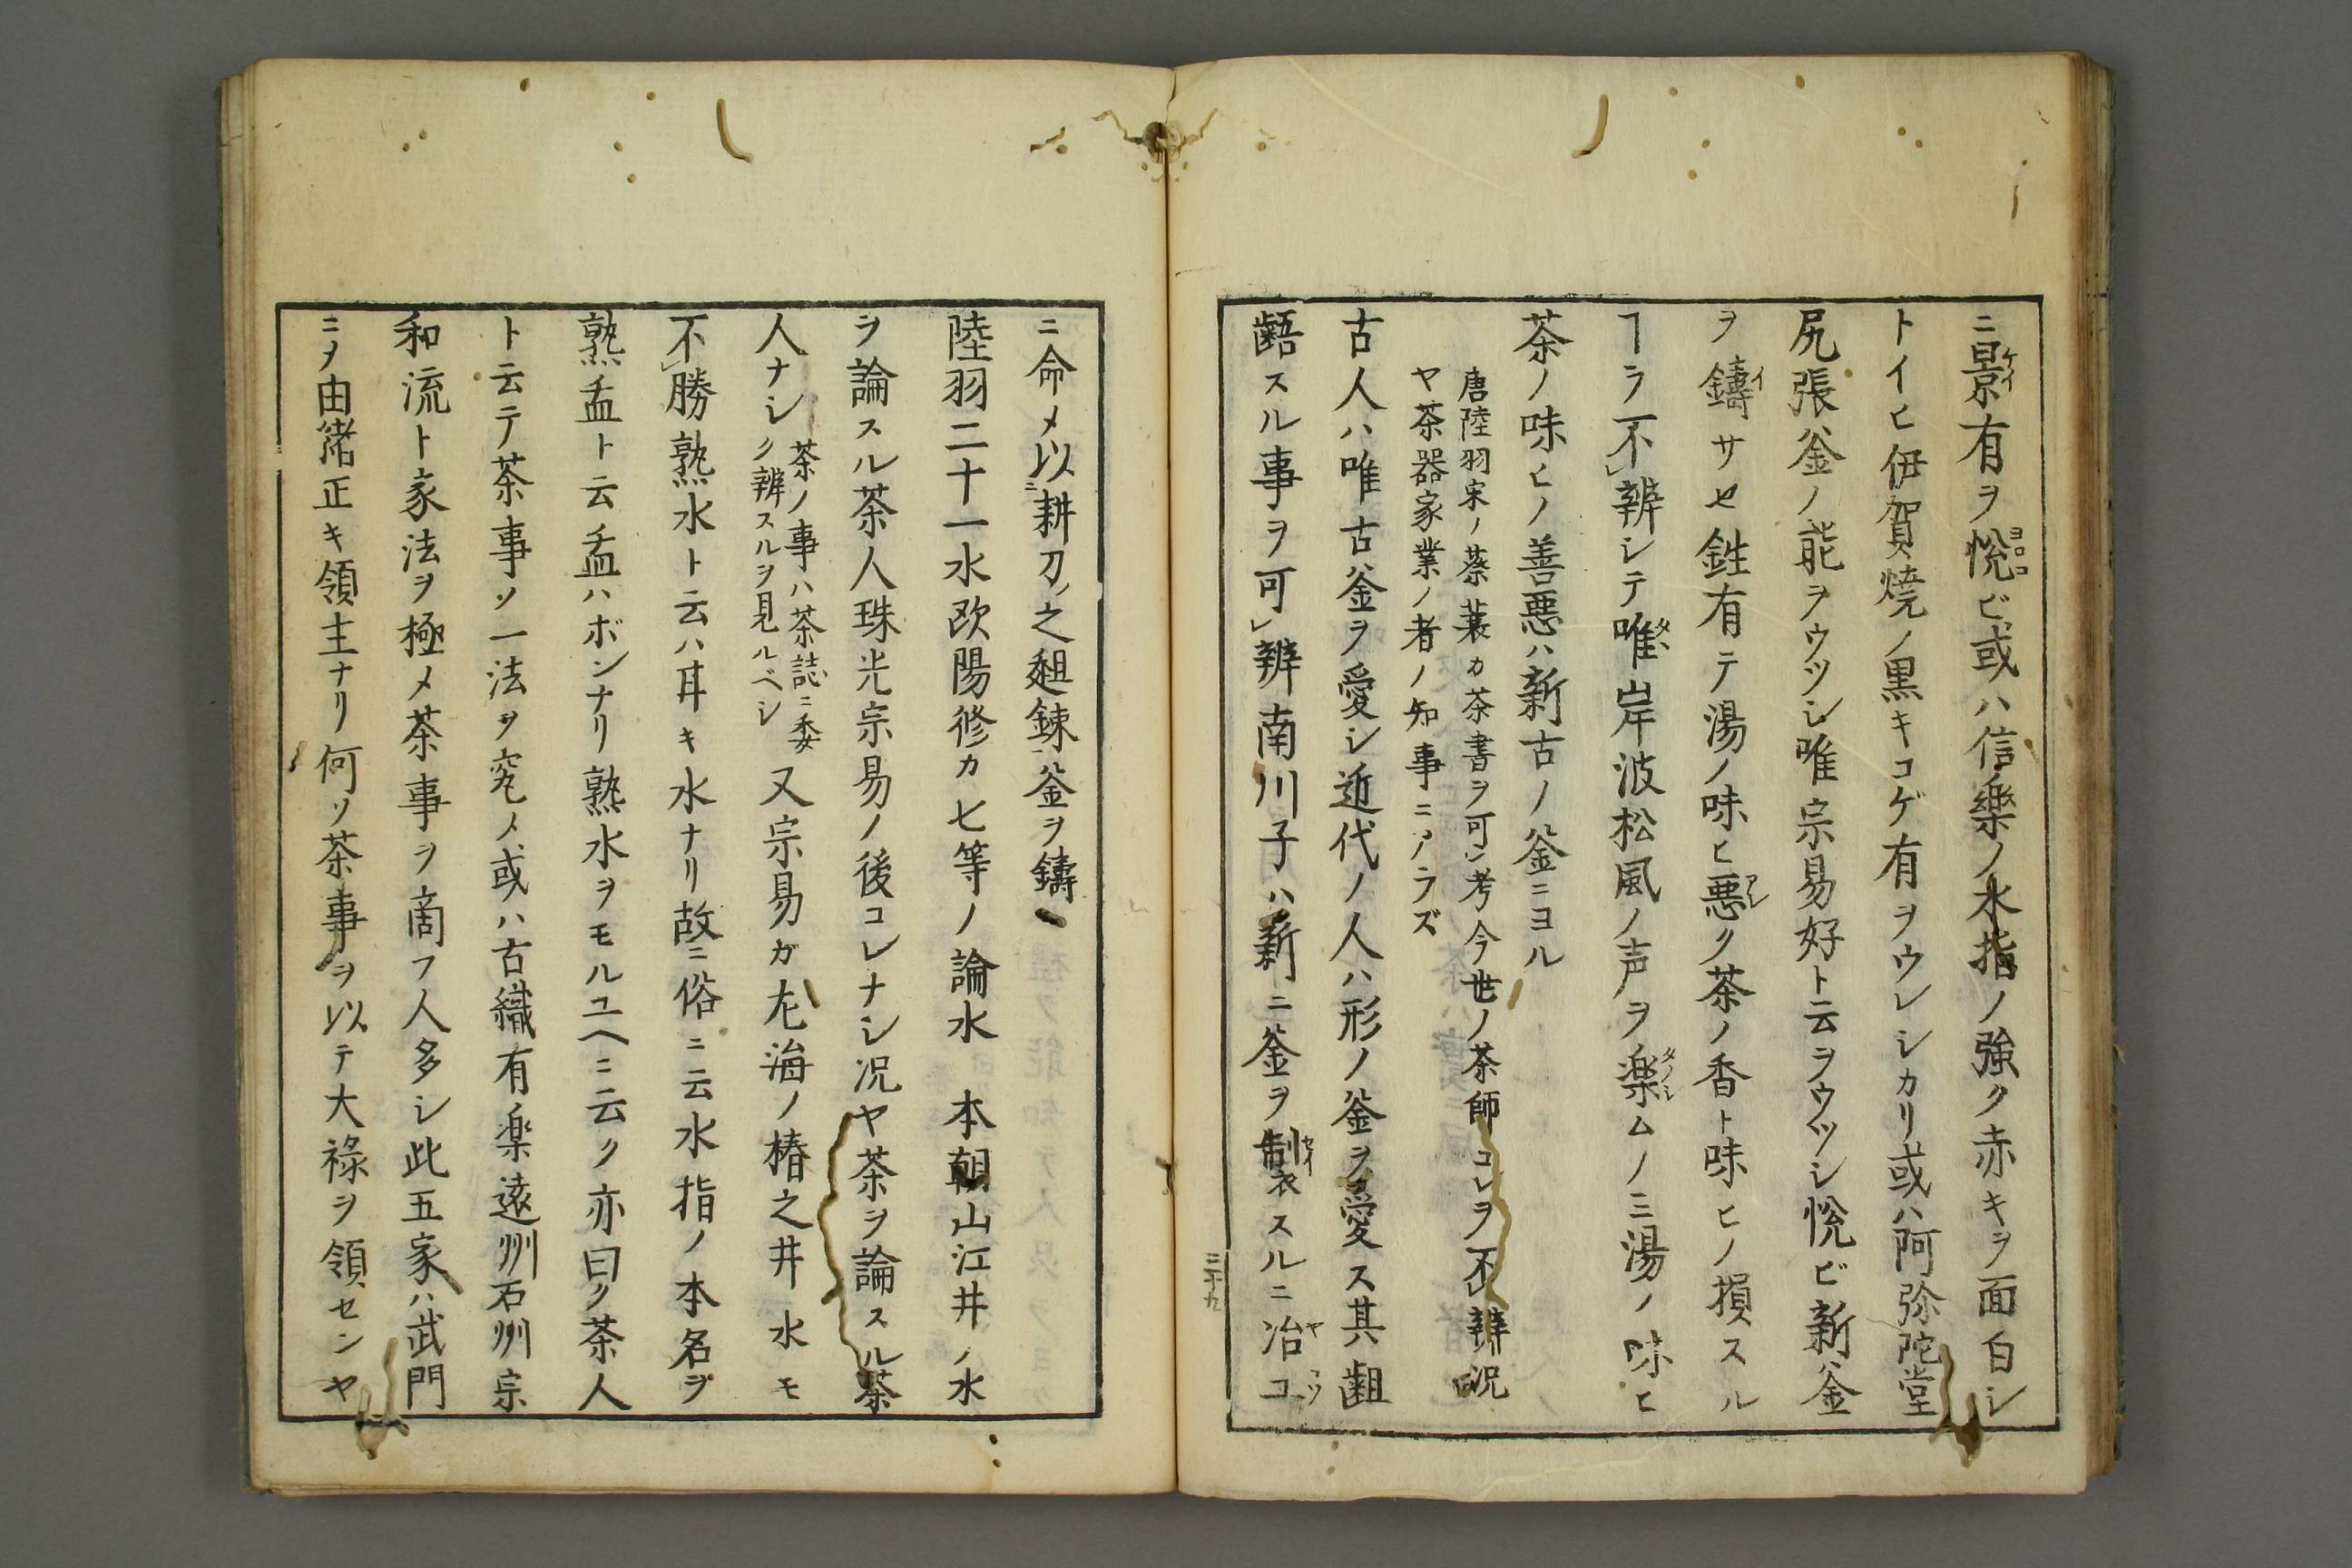 ニ景有ヲ悅ビ或ハ信樂ノ水指ノ強ク赤キヲ面白シ
トイヒ伊賀焼ノ黒キコゲ有ヲウレシカリ或ハ阿弥陀堂
尻張釜ノ能ヲウツシ唯宗易好ト云ヲウツシ悅ビ新釜
ヲ鑄サセ鉎有テ湯ノ味ヒ悪ク茶ノ香ト味ヒノ損スル
ヿラ不辨シテ唯岸波松風ノ声ヲ楽ムノミ湯ノ味ヒ
茶ノ味ヒノ善悪ハ新古ノ釜ニヨル
唐陸羽宋ノ蔡襄カ茶書ヲ可考今世ノ茶師コレヲ不辨況
ヤ茶器家業ノ者ノ知事ニアラズ
古人ハ唯古釜ヲ愛シ近代ノ人ハ形ノ釜ヲ愛ス其齟
齬スル事ヲ可辨南川子ハ新ニ釜ヲ製スルニ冶コ
三十九
ニ命メ以耕刀之䥫錬釜ヲ鑄
陸羽二十一水欧陽修カ七等ノ論水 本朝山江井ノ水
ヲ論スル茶人珠光宗易ノ後コレナシ况ヤ茶ヲ論スル茶
人ナシ茶ノ事ハ茶誌ニ委ク辨スルヲ見ルベシ又宗易ガ尢海ノ椿之井水モ
不勝熟水ト云ハ耳キ水ナリ故ニ俗ニ云水指ノ本名ヲ
熟盂ト云盂ハボンナリ熟水ヲモルユヘニ云ク亦曰ク茶人
ト云テ茶事ソ一法ヲ究メ或ハ古織有楽遠州石州宗
和流ト家法ヲ極メ茶事ヲ商フ人多シ此五家ハ武門
ニヲ由緒正キ領主ナリ何ソ茶事ヲ以テ大禄ヲ領センヤ